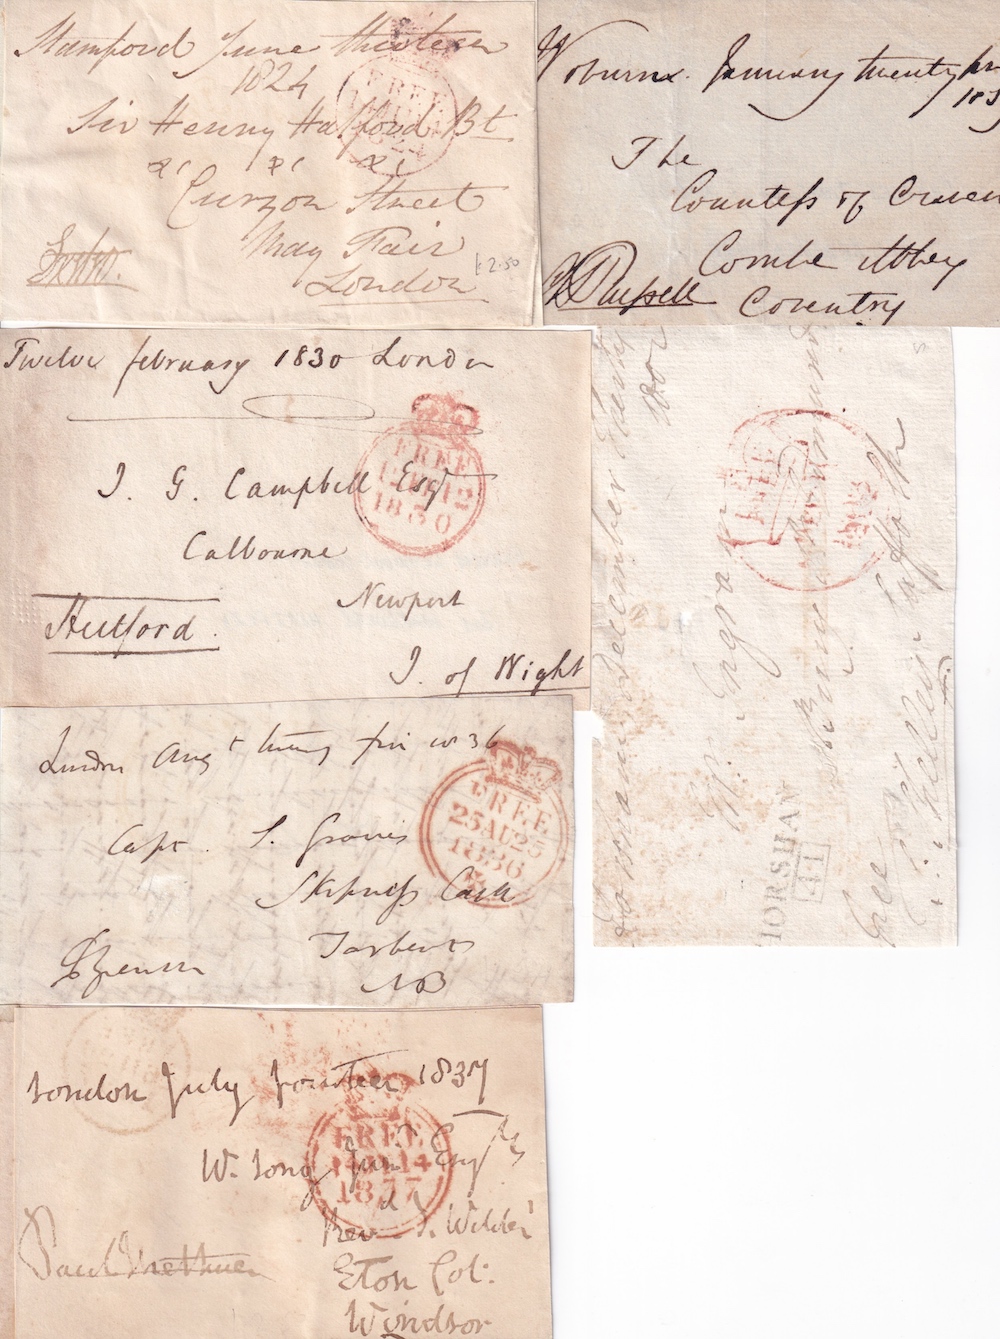 Stamford June thirteen
1824
Sir Henry Halford Bt
&c &c &c
Curzon Street
May Fair
London
£2.50
FREE
1824
Woburn January twenty
The
Countess of Craven
Combe Abbey
Coventry
Russell
Twelve february 1830 London
J. G. Campbell Esqr
Calbourne
Newport
I. of Wight
Hertford.
FREE
12 FE 12
1830
December
FREE
HORSHAM
41
Free
London Augt twenty five 1836
Capt. S. Grovis
Skipness Castle
Tarbert
NB
FREE
25 AU 25
1836
London July fourteen 1837
W. Long Junr Esqr
Revd J. Wilder
Eton Col:
Windsor
Paul Methuen
FREE
14 JY 14
1837